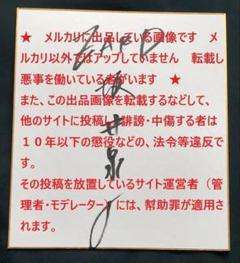 ★ メルカリに出品している画像です メ
ルカリ以外ではアップしていません 転載し
悪事を働いている者がいます ★
また、この出品画像を転載するなどして、
他のサイトに投稿し、誹謗・中傷する者は
１０年以下の懲役などの、法令等違反で
す。
その投稿を放置しているサイト運営者（管
理者・モデレーター）には、幇助罪が適用さ
れます。
ZARD
坂井泉